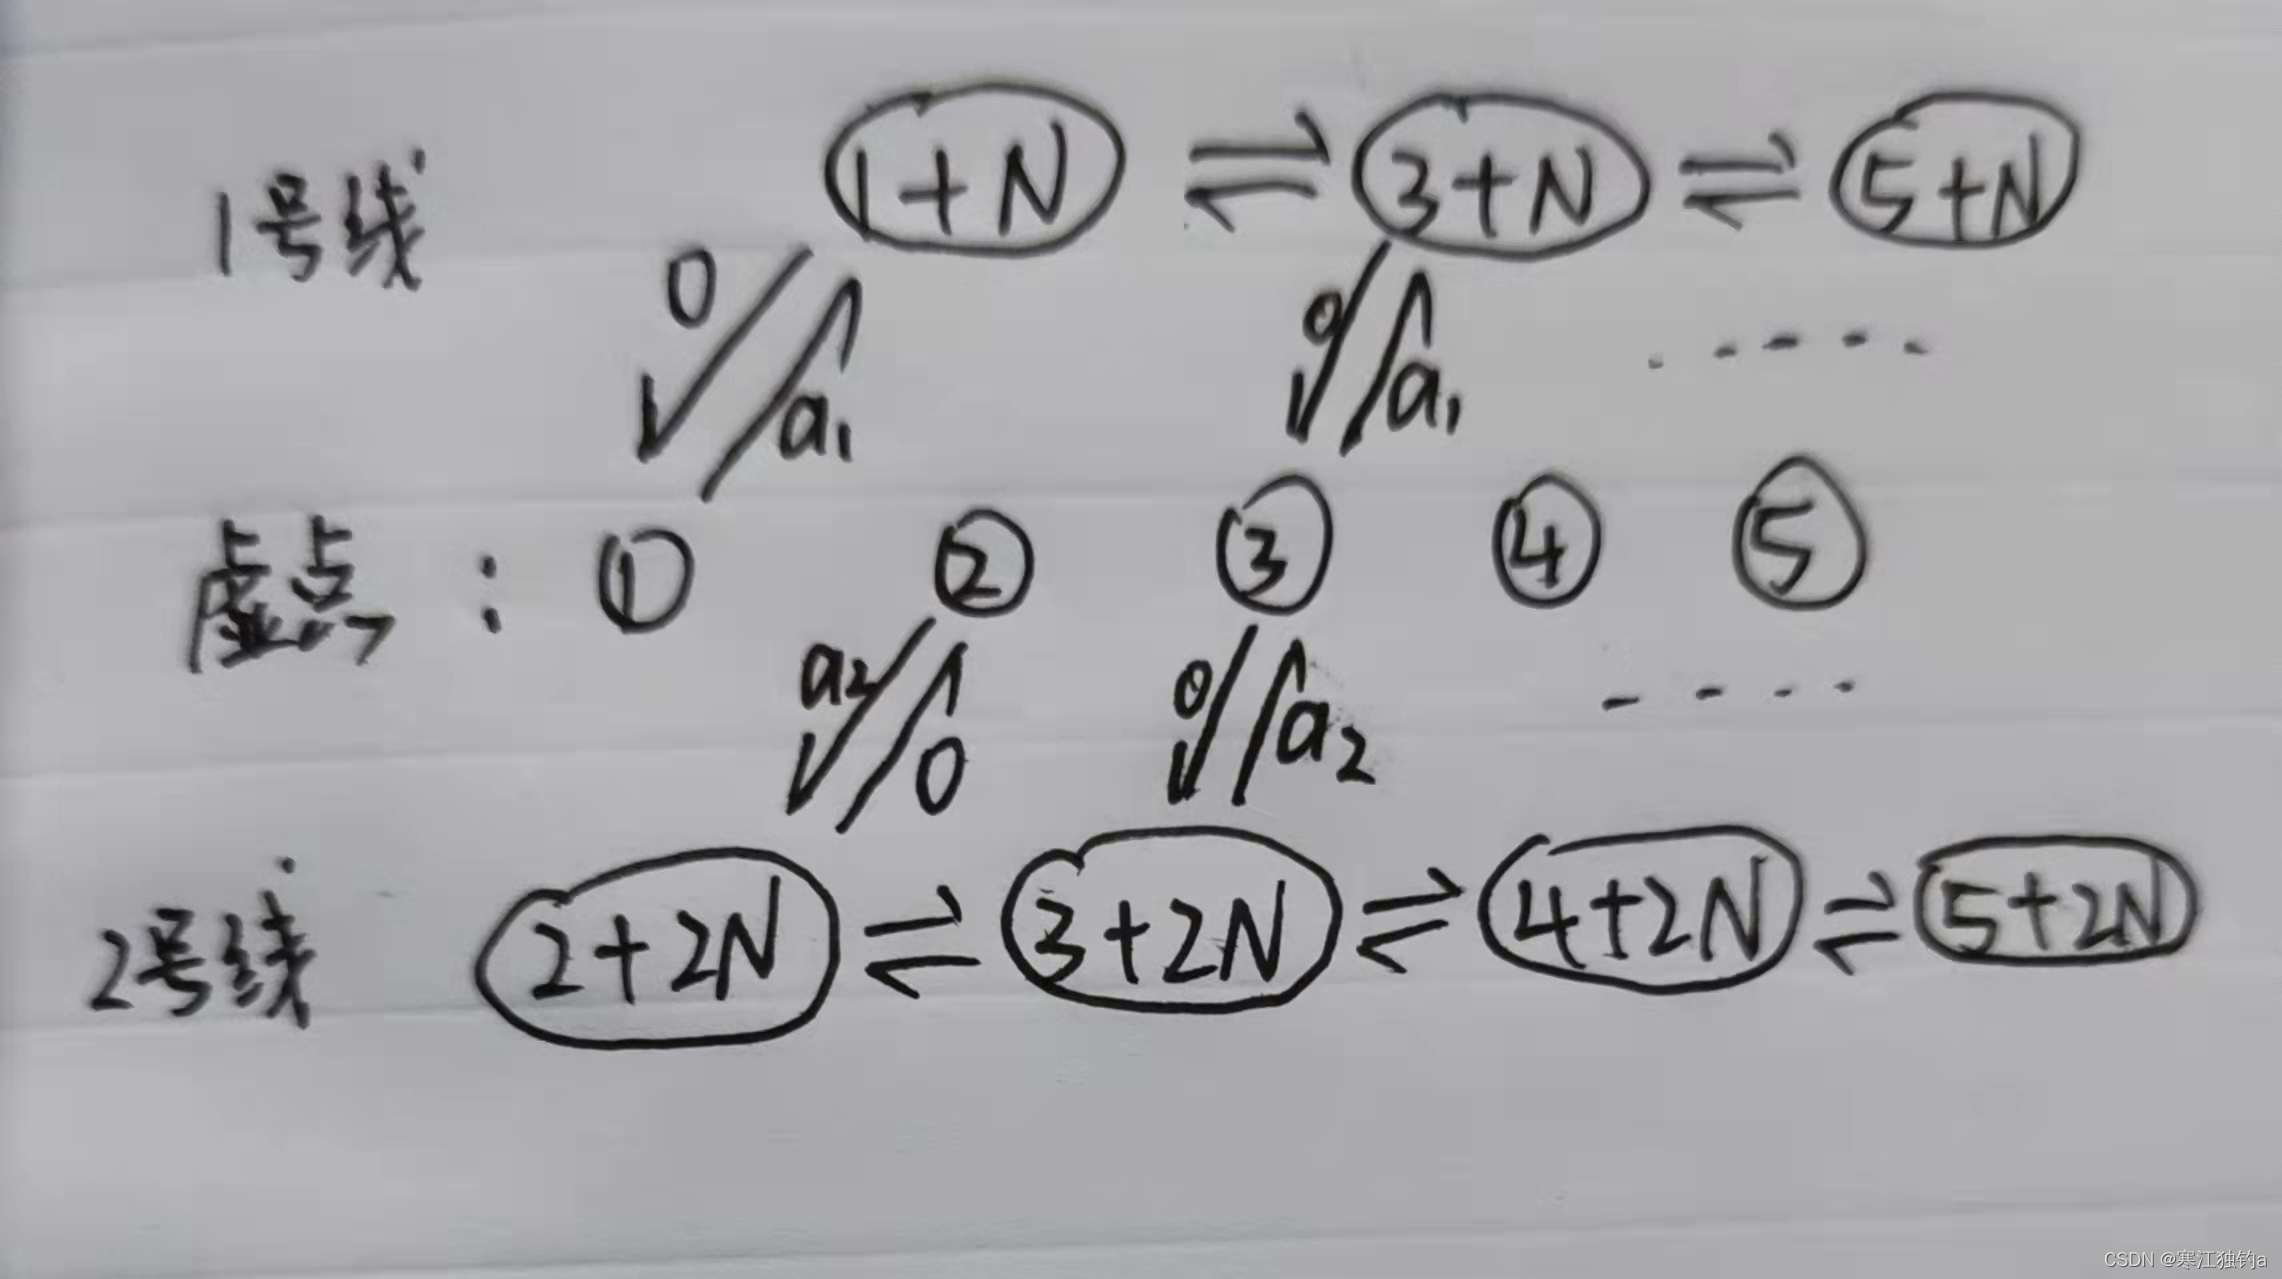 1号线 1+N ⇌ 3+N ⇌ 5+N
0 a₁ 0 a₁ .....
虚点: ① ② ③ ④ ⑤
a₂ 0 0 a₂ ....
2号线 2+2N ⇌ 3+2N ⇌ 4+2N ⇌ 5+2N
CSDN @寒江独钓a